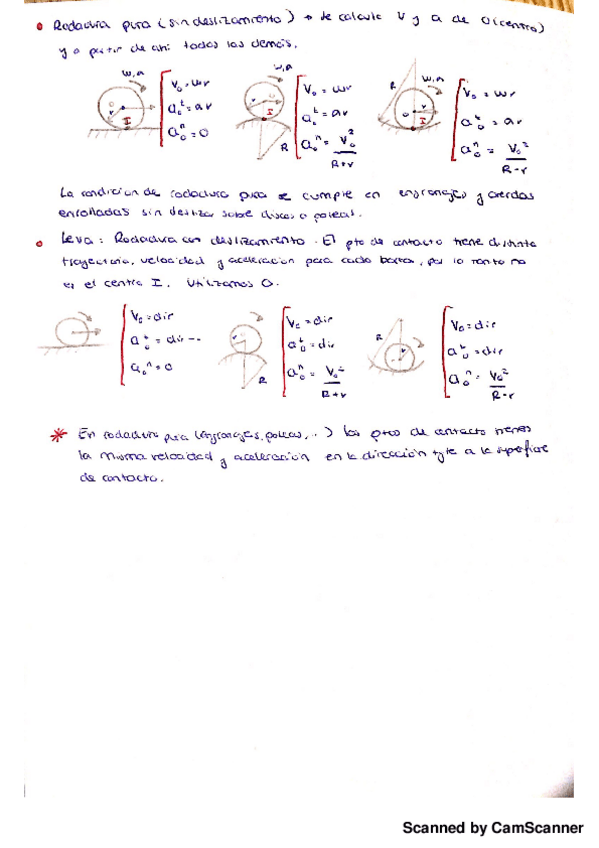 Rodadura pura (sin deslizamiento) → se calcula V y a de O(centro)
y a partir de ahí todos los demás.
w,α
V₀ = wr
a₀ᵗ = αr
a₀ⁿ = 0
r
I
w,α
V₀ = wr
a₀ᵗ = αr
a₀ⁿ = V₀²/(R+r)
I
R
w,α
V₀ = wr
a₀ᵗ = αr
a₀ⁿ = V₀²/(R-r)
R
r
I
La condición de rodadura pura se cumple en engranajes y cuerdas
enrolladas sin deslizar sobre discos o poleas.
Leva: Rodadura con deslizamiento. El pto de contacto tiene distinta
trayectoria, velocidad y aceleración para cada barra, por lo tanto no
es el centro I. Utilizamos O.
V₀ = dir
a₀ᵗ = dir --
a₀ⁿ = 0
V₀ = dir
a₀ᵗ = dir
a₀ⁿ = V₀²/(R+r)
R
V₀ = dir
a₀ᵗ = dir
a₀ⁿ = V₀²/(R-r)
R
r
* En rodadura pura (engranajes, poleas, ..) los ptos de contacto tienen
la misma velocidad y aceleración en la dirección tgte a la superficie
de contacto.
Scanned by CamScanner